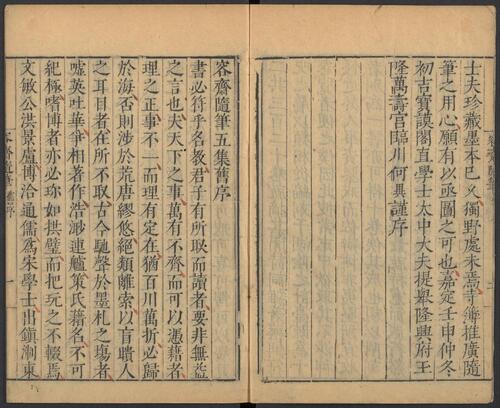 士夫珍藏墨本已久獨野處未焉寺僧推廣隨
筆之用心願有以亟圖之可也嘉定壬申仲冬
初吉寶謨閣直學士太中大夫提舉隆興府玉
隆萬壽宮臨川何異謹序
容齋隨筆五集舊序
書必符乎名教君子有所取而讀者要非無益
之言也夫天下之事萬有不齊而可以憑藉者
理之正事不一而理有定在猶百川萬折必歸
於海否則涉於荒唐繆悠絕類離索以盲聵人
之耳目者在所不取古今馳聲於墨札之塲者
噓英吐華爭相著作浩渺連艫策氏籍名不可
紀極嗜博者亦必珍如拱璧而把玩之不輟焉
文敏公洪景盧博洽通儒爲宋學士出鎮浙東